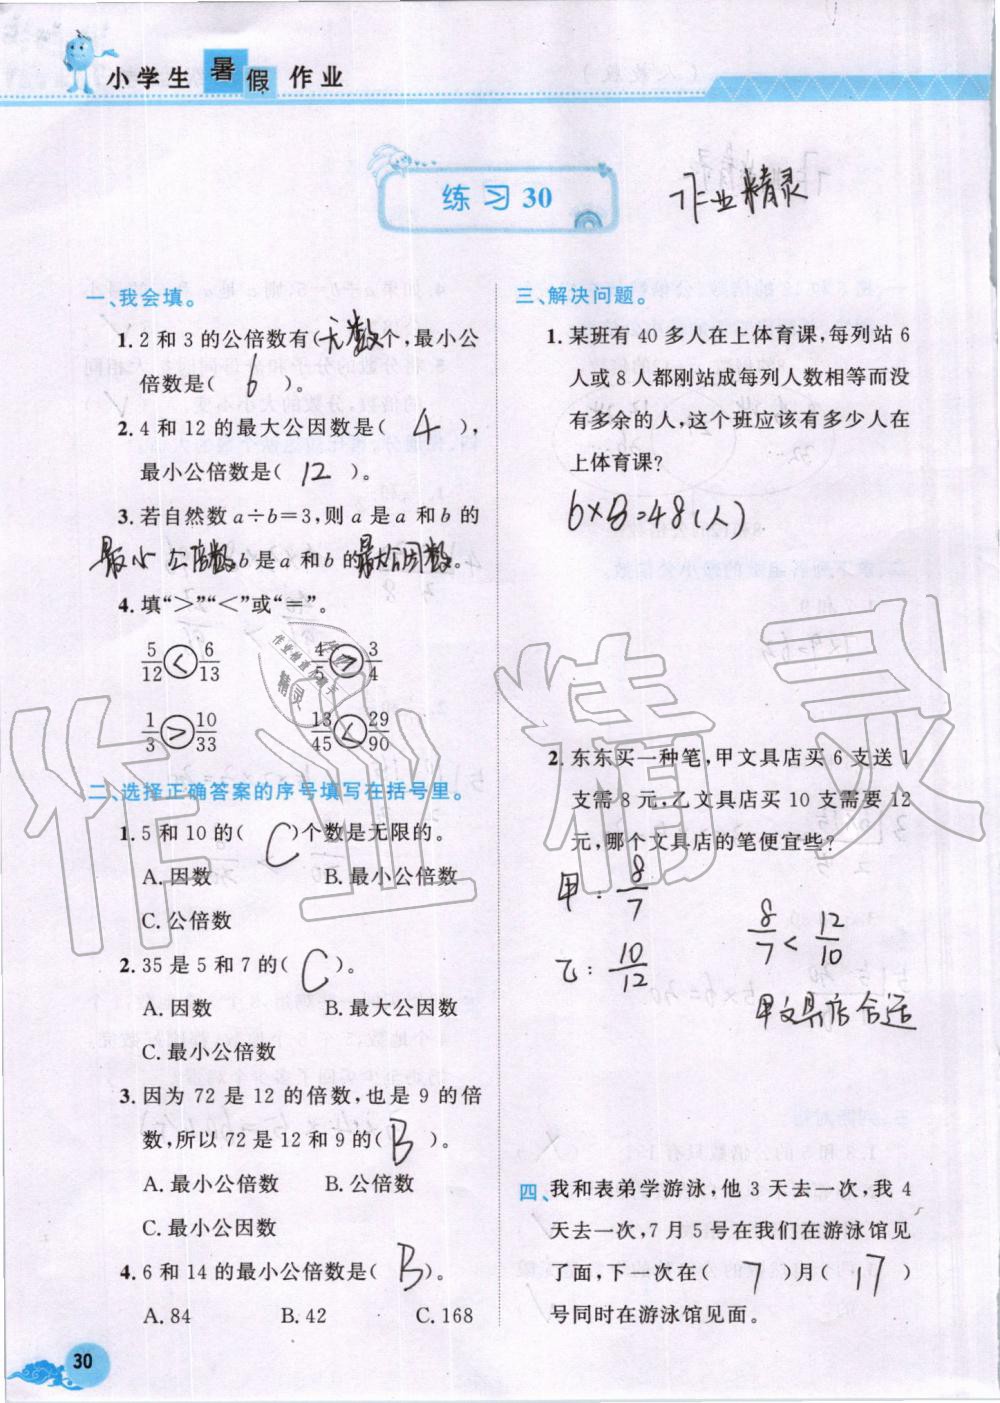 小学生暑假作业
练习30
作业精灵
一、我会填。
1.2和3的公倍数有(无数)个,最小公
倍数是( 6 )。
2.4和12的最大公因数是( 4 ),
最小公倍数是( 12 )。
3.若自然数a÷b=3,则a是a和b的
最小公倍数,b是a和b的最大公因数。
4.填“>”“<”或“=”。
5/12 < 6/13 4/5 > 3/4
1/3 > 10/33 13/45 < 29/90
二、选择正确答案的序号填写在括号里。
1.5和10的( C )个数是无限的。
A.因数 B.最小公倍数
C.公倍数
2.35是5和7的( C )。
A.因数 B.最大公因数
C.最小公倍数
3.因为72是12的倍数,也是9的倍
数,所以72是12和9的( B )。
A.最小公倍数 B.公倍数
C.最小公因数
4.6和14的最小公倍数是( B )。
A.84 B.42 C.168
30
三、解决问题。
1.某班有40多人在上体育课,每列站6
人或8人都刚站成每列人数相等而没
有多余的人,这个班应该有多少人在
上体育课?
6×8=48(人)
2.东东买一种笔,甲文具店买6支送1
支需8元,乙文具店买10支需要12
元,哪个文具店的笔便宜些?
甲: 8/7
乙: 10/12
8/7 < 12/10
甲文具店合适
四、我和表弟学游泳,他3天去一次,我4
天去一次,7月5号在我们在游泳馆见
了面,下一次在( 7 )月( 17 )
号同时在游泳馆见面。
作业精灵